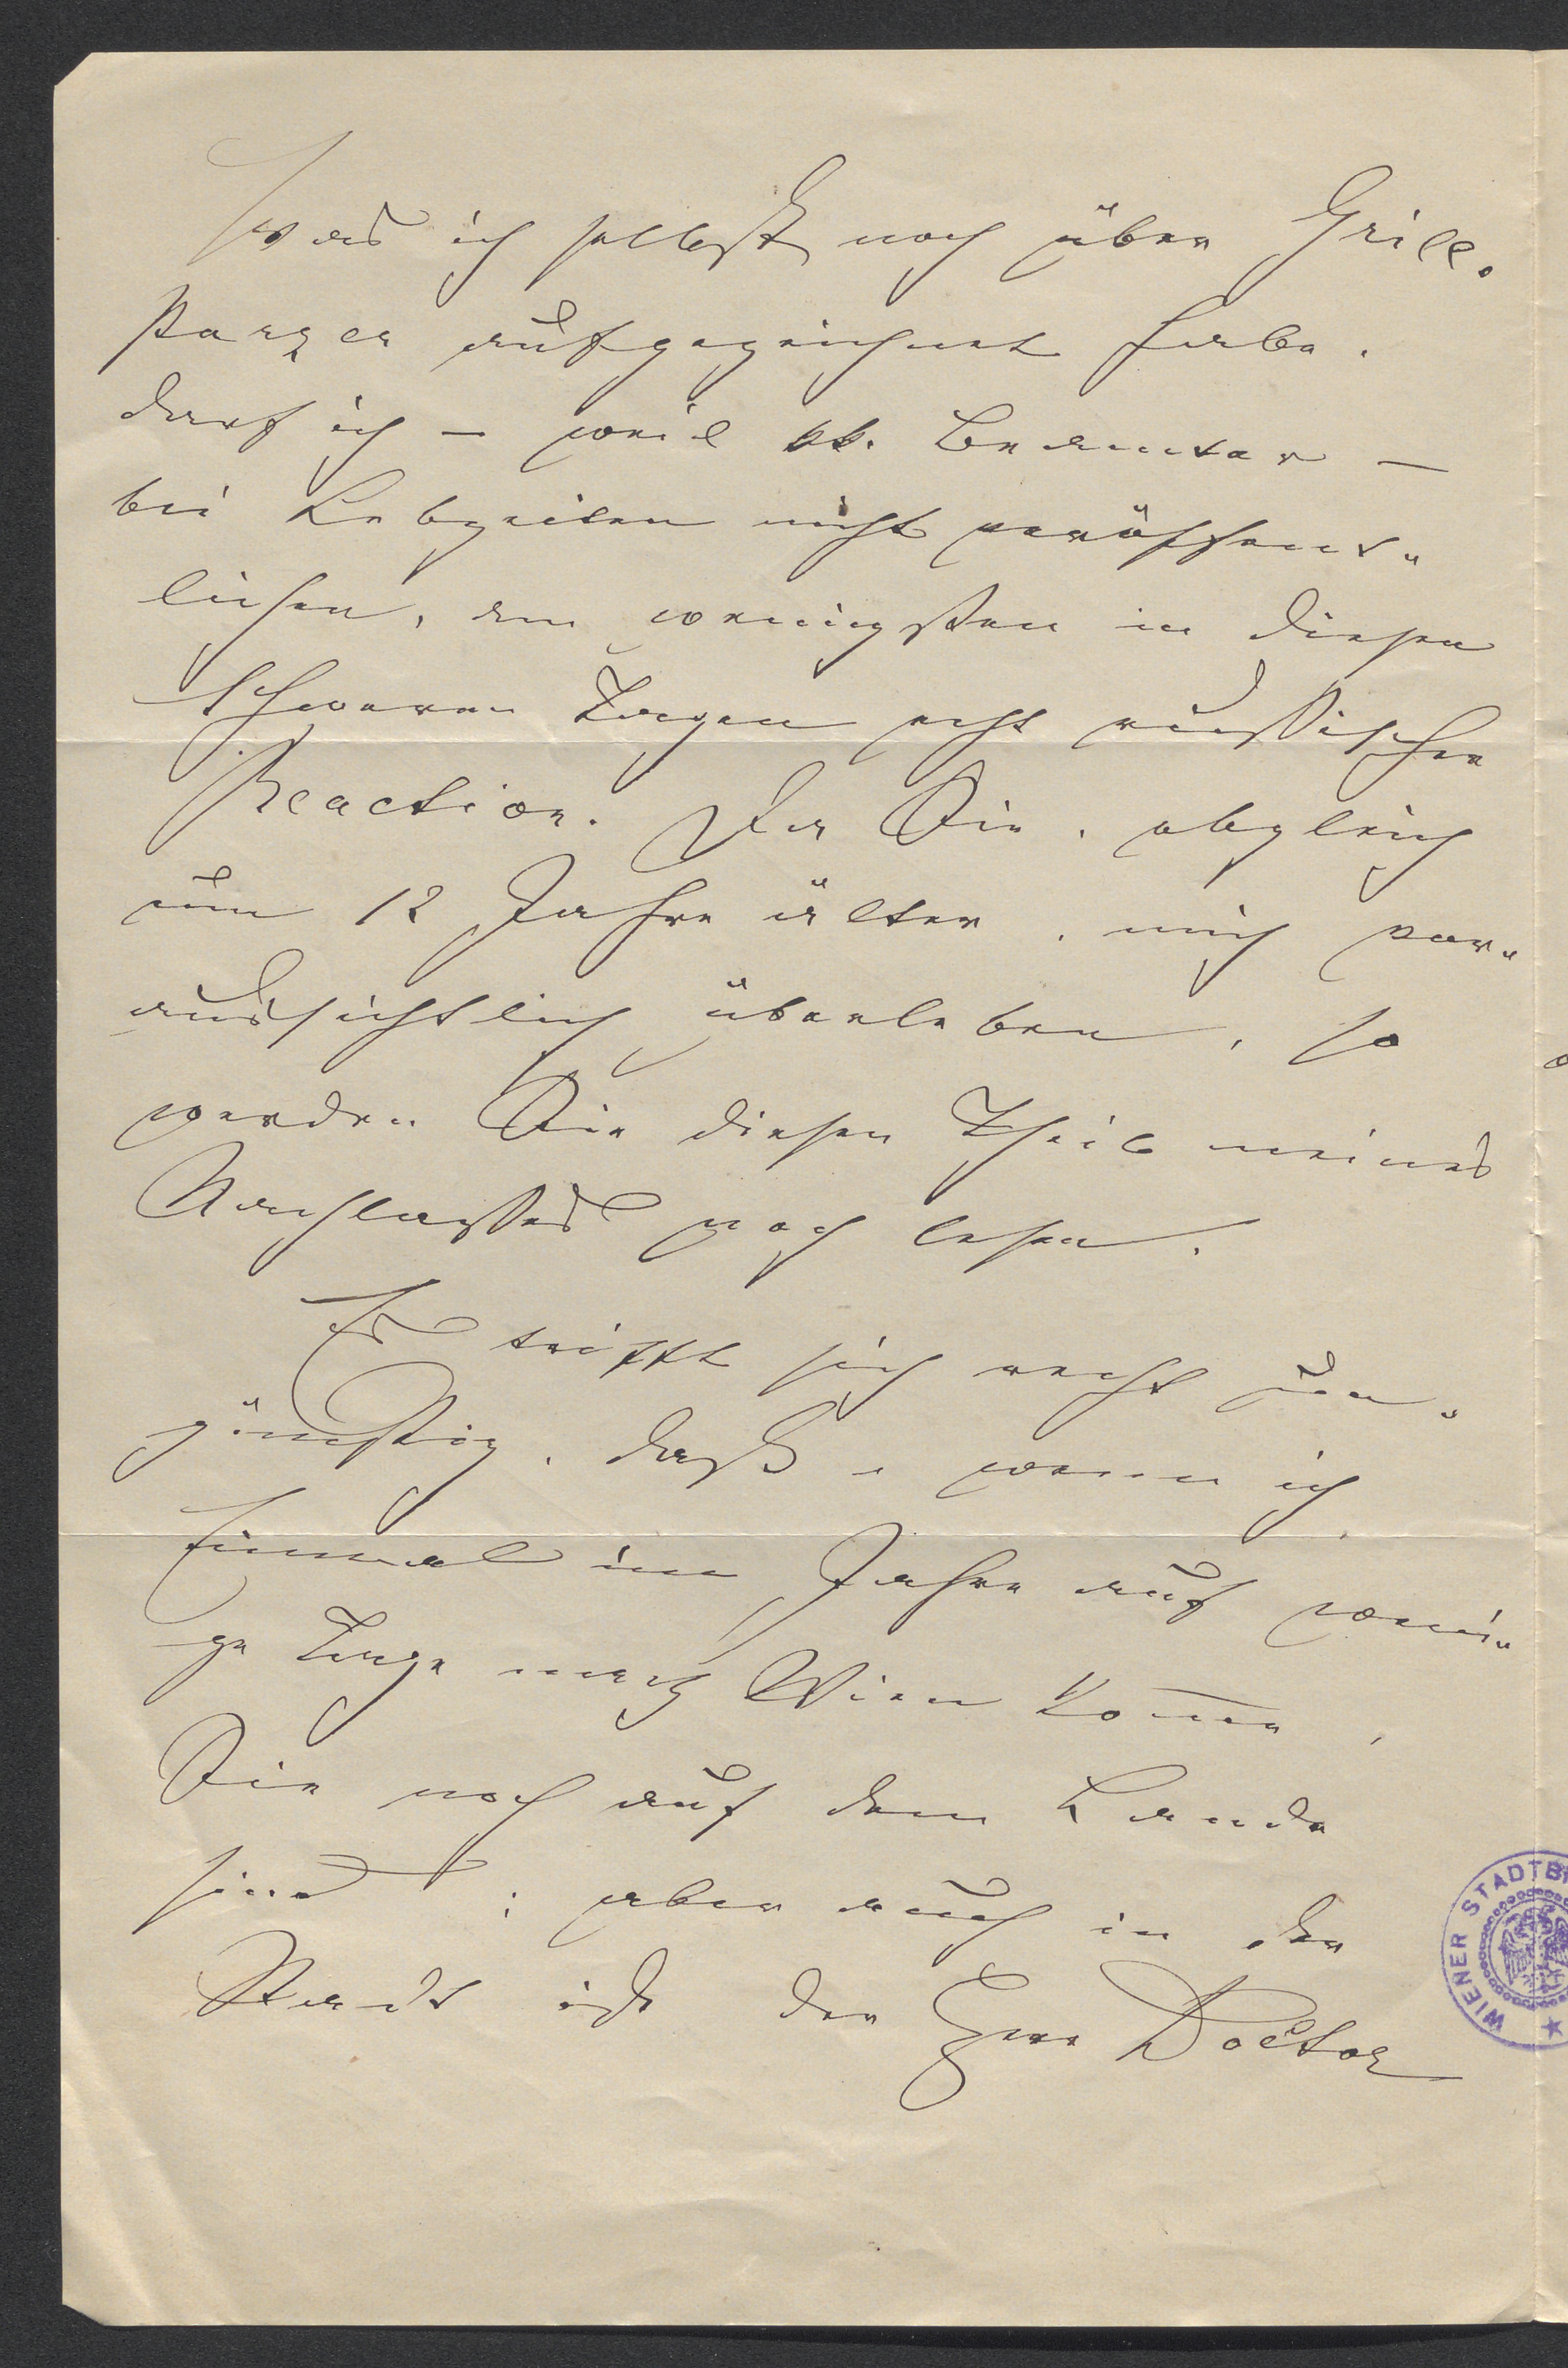 Was ich selbst noch über Grill-
parzer aufgezeichnet habe,
darf ich – weil kk. Beamter –
bei Lebzeiten nicht veröffent-
lichen, am wenigsten in diesen
schweren Tagen echt russischer
Reaction. Da Sie, obgleich
um 12 Jahre älter, mich vor-
aussichtlich überleben, so
werden Sie diesen Theil meines
Nachlasses noch lesen.
Es trifft sich recht un-
günstig, daß, wenn ich
Einmal im Jahre auf weni-
ge Tage nach Wien kom̅e,
Sie noch auf dem Lande
sind; aber auch in der
Stadt ist der Herr Doctor
WIENER STADTB